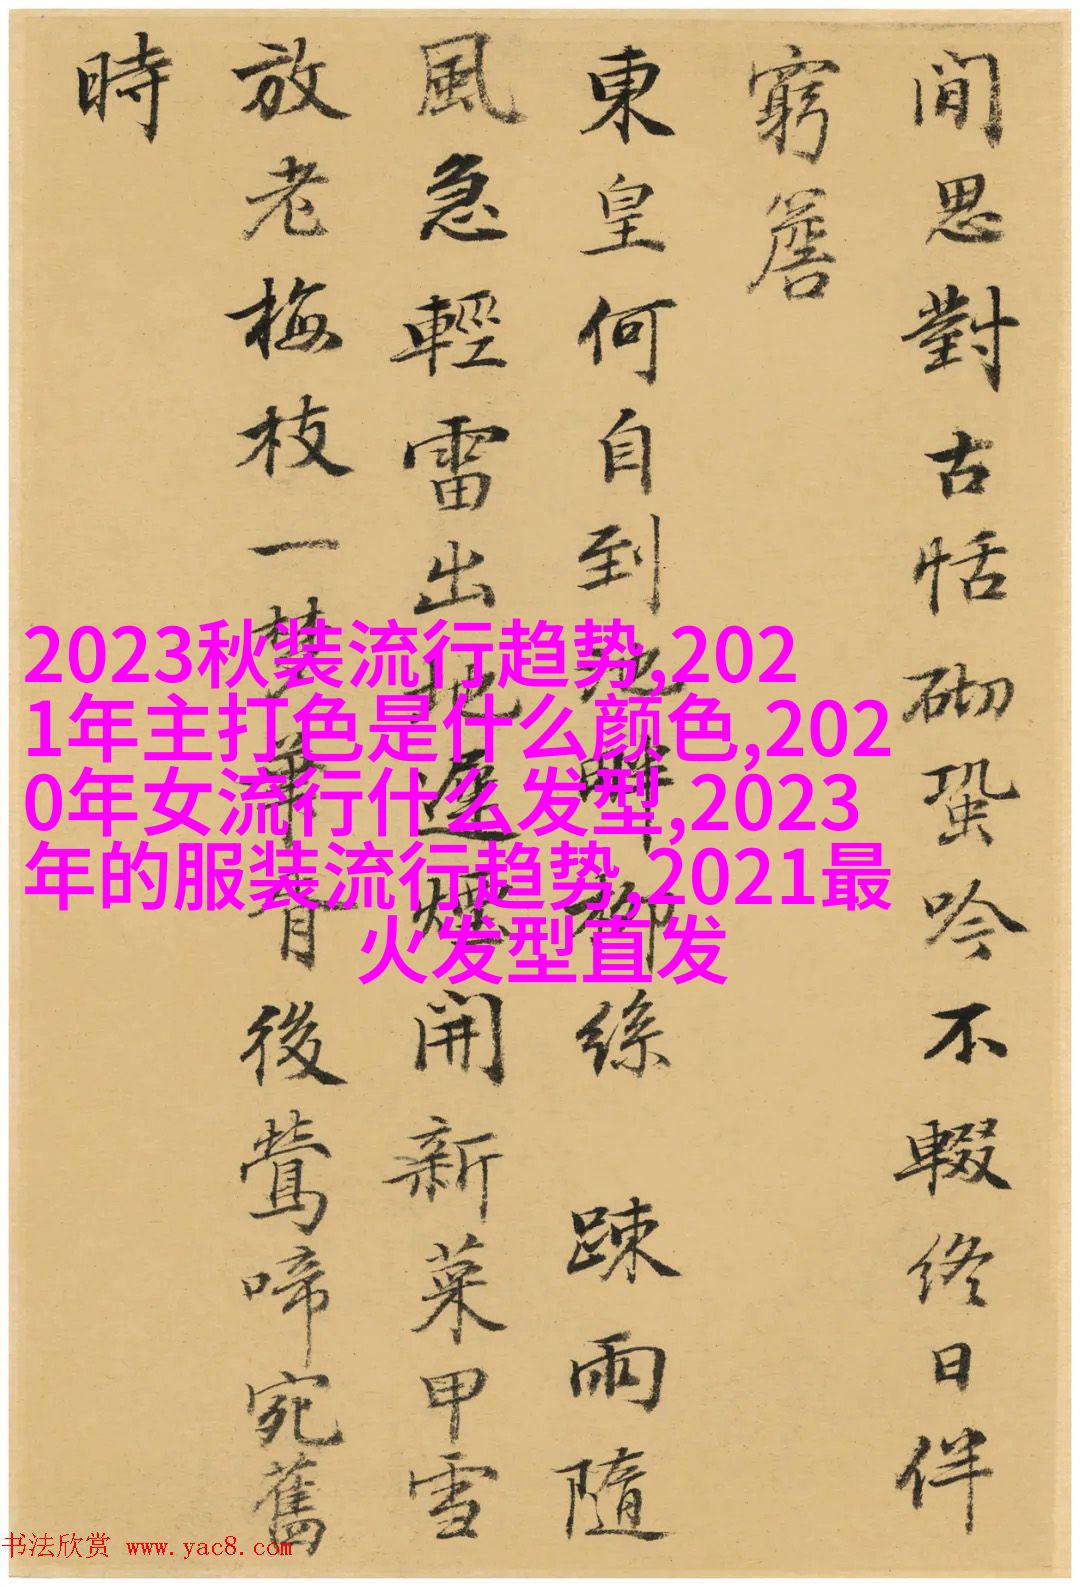 間思對古恬砌蛩吟不輟終日伴
窮簷
東皇何自到池畔柳絲踈雨隨
風急輕雷出地遲煙開新菜甲雪
放老梅枝一夢華胥後鶯啼宛舊
時
2023秋装流行趋势,202
1年主打色是什么颜色,202
0年女流行什么发型,2023
年的服装流行趋势,2021最
火发型直发
书法欣赏 www.yac8.com